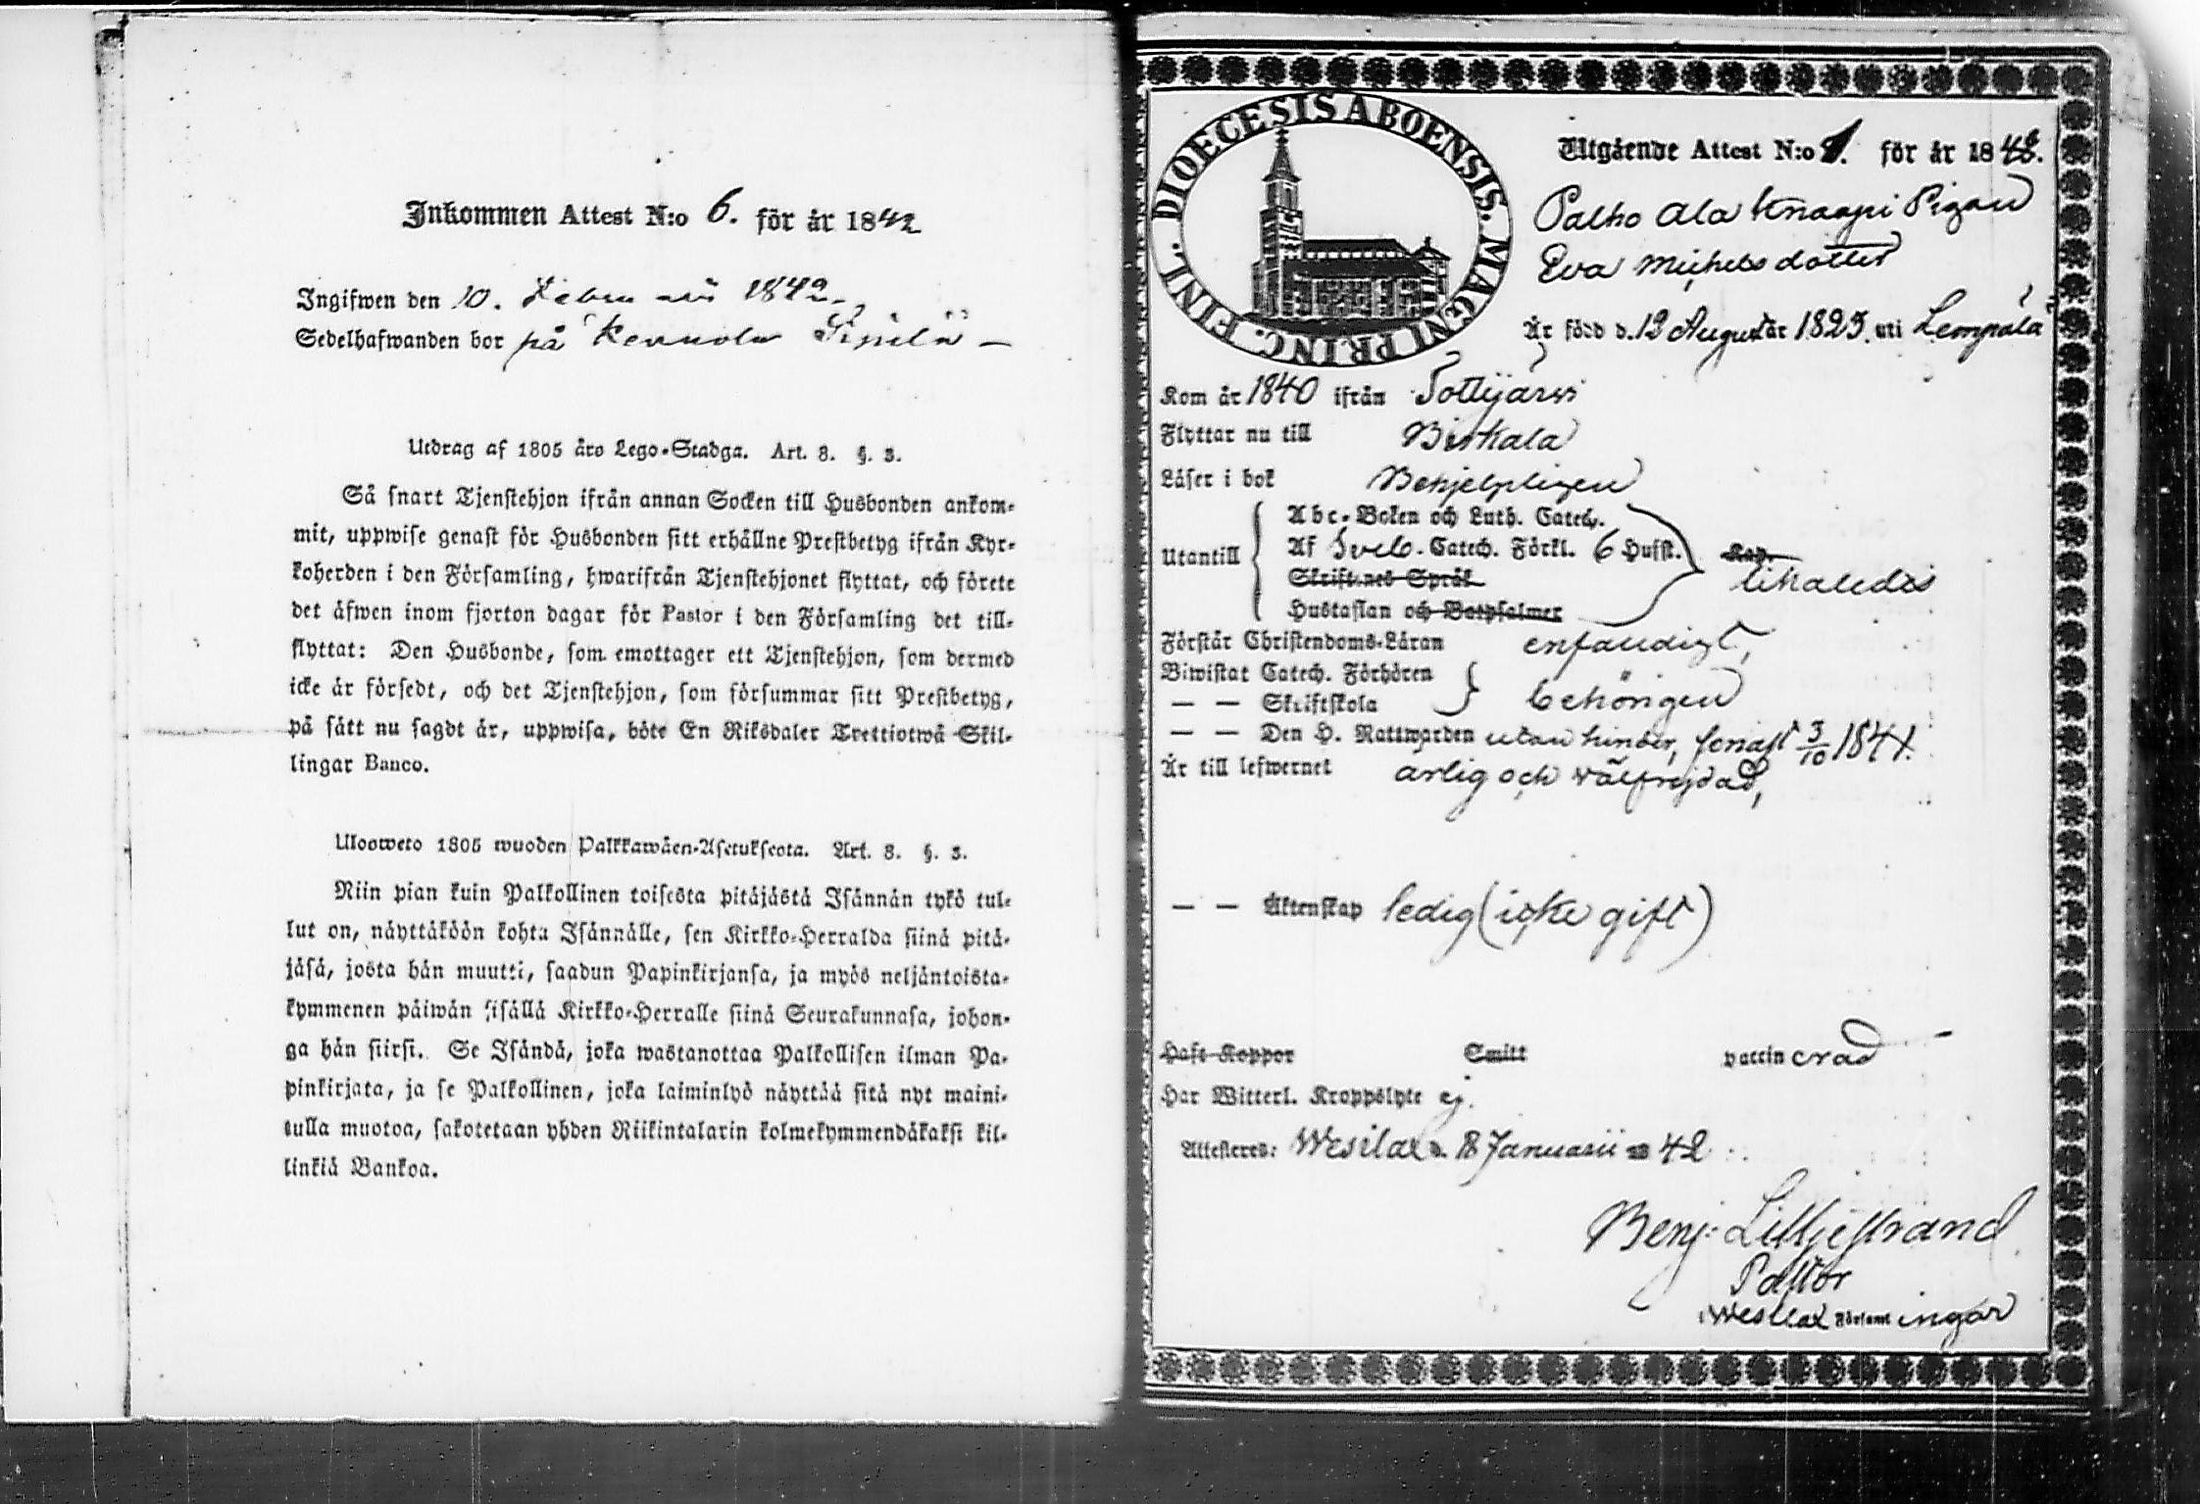 Inkommen Attest N:o 6. för år 1842
Ingifwen den 10. Februarii 1842.
Sedelhafwanden bor på
Utdrag af 1805 års Lego-Stadga. Art. 8. §. 3.
Så snart Tjenstehjon ifrån annan Socken till Husbonden ankom-
mit, uppwise genast för Husbonden sitt erhållne Prestbetyg ifrån Kyr-
koherden i den Församling, hwarifrån Tjenstehjonet flyttat, och förete
det äfwen inom fjorton dagar för Pastor i den Församling det till-
flyttat: Den Husbonde, som emottager ett Tjenstehjon, som dermed
icke är försedt, och det Tjenstehjon, som försummar sitt Prestbetyg,
på sätt nu sagdt är, uppwisa, böte En Riksdaler Trettiotwå Skil-
lingar Banco.
Ulosweto 1805 wuoden Palkkawäen-Asetuksesta. Art. 8. §. 3.
Niin pian kuin Palkollinen toisesta pitäjästä Isännän tykö tul-
lut on, näyttäköön kohta Isännälle, sen Kirkko-Herralda siinä pitä-
jäsä, josta hän muutti, saadun Papinkirjansa, ja myös neljäntoista-
kymmenen päiwän sisällä Kirkko-Herralle siinä Seurakunnasa, johon-
ga hän siirsi. Se Isändä, joka wastanottaa Palkollisen ilman Pa-
pinkirjata, ja se Palkollinen, joka laiminlyö näyttää sitä nyt maini-
tulla muotoa, sakotetaan yhden Riikintalarin kolmekymmendäkaksi kil-
linkiä Bankoa.
DIOECESIS ABOENSIS. MAGNI PRINC. FINL.
Utgående Attest N:o 1. för år 1842.
Palho Ala Knaapi Pigan
Eva Michelsdotter
Är född d. 12 August år 1825. uti Lempälä
Kom år 1840 ifrån Tottijärwi
Flyttar nu till Birkala
Läser i bok Behjelpligen
Utantill
Abc-Boken och Luth. Catech.
Af Sveb. Catech. Förkl. 6 Hufst.
Skriftenes Språk
Hustaflan och Botpsalmer
Kap.
likaledes
Förstår Christendoms-Läran enfaldigt,
Biwistat Catech. Förhören
— — Skriftskola
behörigen
— — Den H. Nattwarden utan hinder, senast 3/10 1841.
Är till lefwernet ärlig och wälfrejdad,
— — Äktenskap ledig (icke gift)
Haft Koppor Smitt vaccinerad
Har Witterl. Kroppslyte ej.
Attesteres: Wesilax d. 18 Januarii 18 42
Benj. Lilljestrand
Pastor
i Wesilax Församlingar